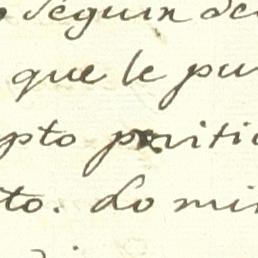 Séguin de
que le pu
pto priti
to. Lo mi